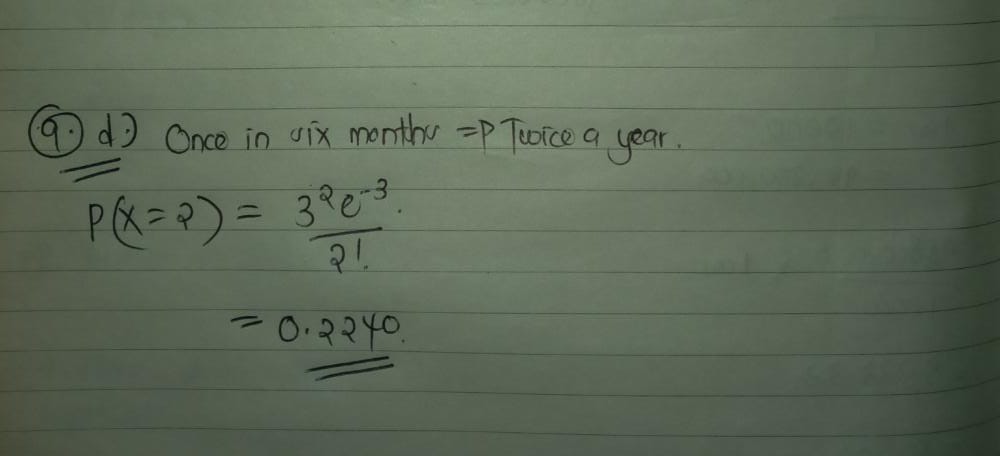 9. d.) Once in six months => Twice a year.
P(X=2) = 3²e⁻³.
2!
= 0.2240.